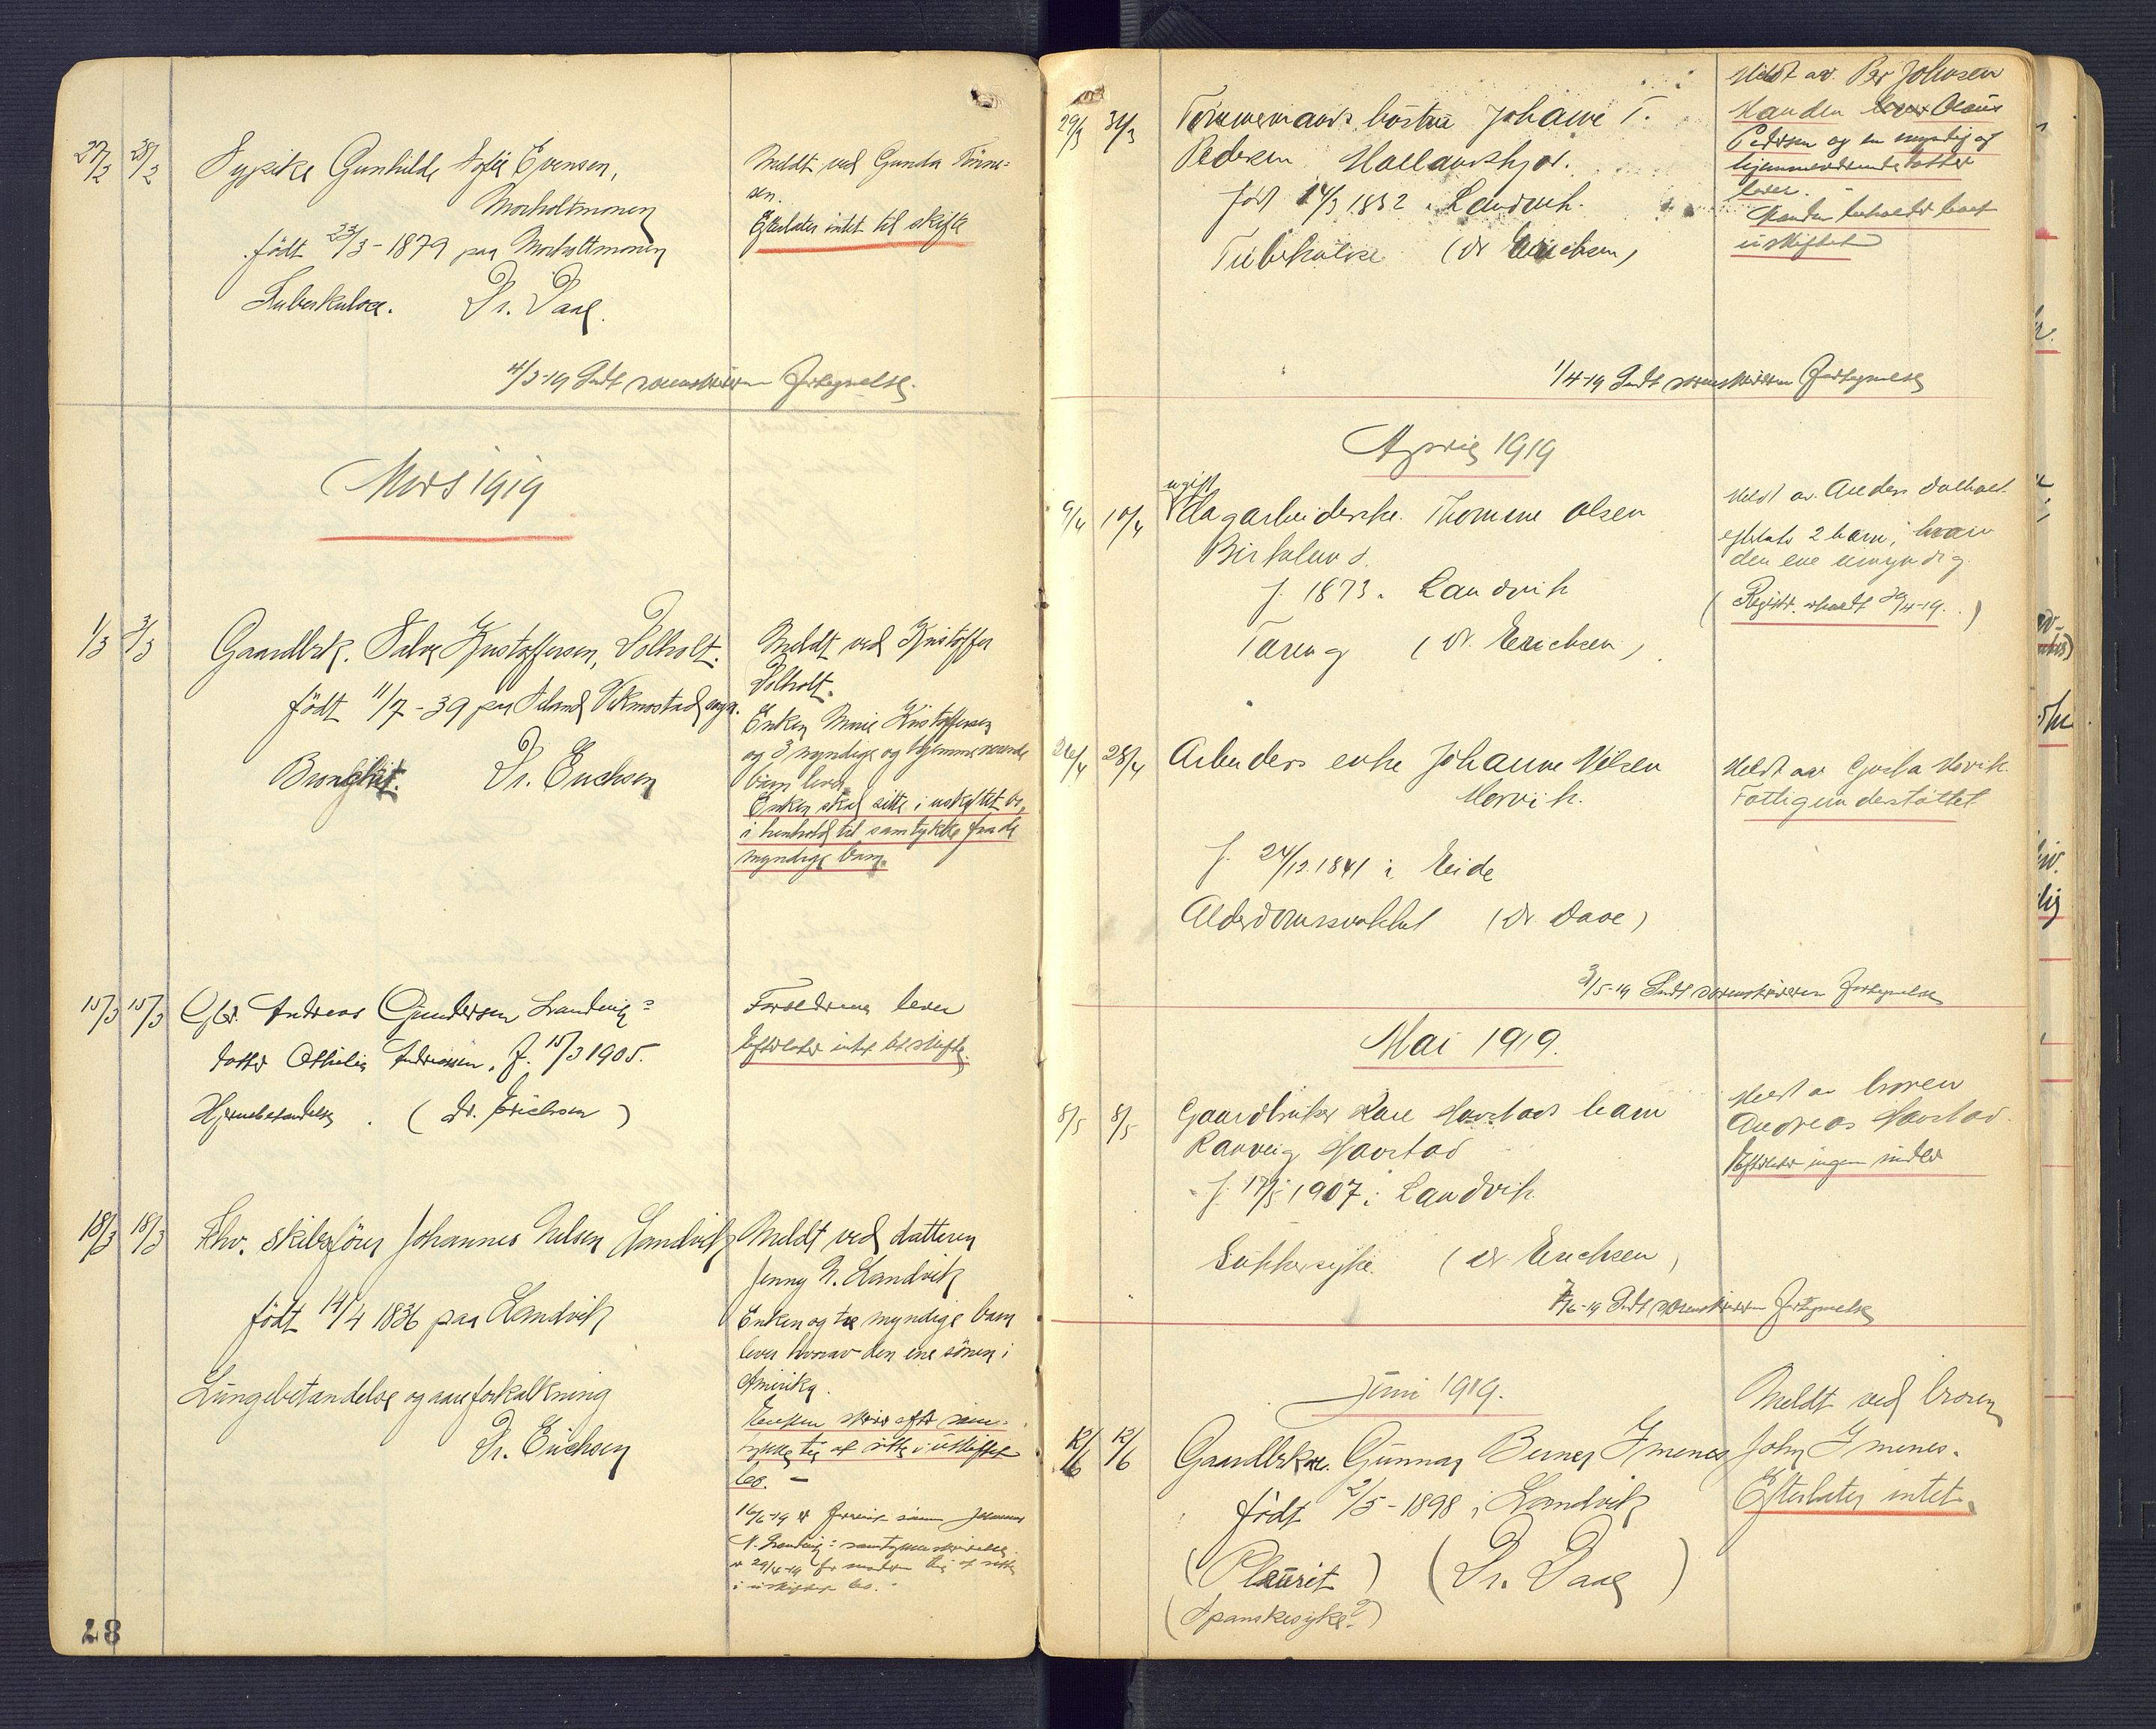 27/2 28/2 Sypike Gunhilde Sofie Evensen,
Morholtmonen
født 23/3-1879 paa Morholtmonen
Tuberkulose. Dr. Daae.
Meldt ved Gunda Tønne-
sen.
Efterlater intet til skifte
4/3-19 Sendt sorenskriveren Fortegnelse.
Mars 1919
1/3 3/3 Gaardbrk. Salve Kristoffersen, Dolholt.
født 11/7-39 paa
Bronchit. Dr. Erichsen
Meldt ved Kristoffer
Dolholt.
Enken Marie Kristoffersen
og 3 myndige og hjemmeværende
barn lever.
Enken skal sitte i uskiftet bo,
i henhold til samtykke fra de
myndige barn.
15/3 15/3 Gbr. Andreas Gundersen Landviks
datter Othilie Andreassen, f. 15/3 1905.
Hjernebetændelse. (Dr. Erichsen)
Forældrene lever
Efterlater intet til skifte.
18/3 18/3 Fhv. skibsfører Johannes Nelsen Landvik
født 14/4 1836 paa Landvik
Lungebetændelse og aareforkalkning
Dr. Erichsen
Meldt ved datteren
Jenny N. Landvik
Enken og tre myndige barn
lever hvorav den ene sønen i
Amerika.
Enken skal efter sam-
tykke til at sitte i uskiftet
bo. –
16/6-19 er sønn Johannes
N. Landviks samtykkeskrivelse
av 29/4-19 for moderen til at sitte
i uskiftet bo. -
28
29/3 31/3 Tømmermands hustru Johanne T.
Pedersen
født 14/3 1832 i Landvik.
Tuberkulose (dr Erichsen)
Meldt av Per Johnsen
Manden Olaus
Pedersen og en myndig og
hjemmeværende datter
lever.
Manden beholder boet
uskiftet
1/4-19 Sendt sorenskriveren Fortegnelse
April 1919
ugift
9/4 10/4 Dagarbeiderske. Thomine Olsen
Birkeland.
f. 1873. Landvik
Tæring (dr. Erichsen)
Meldt av. Anders Dalholt.
efterlater 2 barn, hvorav
den ene umyndig
(Registr. avholdt 29/4-19.)
26/4 28/4 Arbeiders enke Johanne Nilsen
Morvik.
f. 24/12.1841 i Eide
Alderdomssvakhet (dr. Daae)
Meldt av Morvik.
Fattigunderstøttet
3/5-19 Sendt sorenskriveren Fortegnelse
Mai 1919.
8/5 8/5 Gaardbruker Kare Havstads barn
Ranveig Havstad
f. 17/5 1907 i Landvik
Sukkersyke. (dr Erichsen)
Meldt av broren
Andreas Havstad.
Efterlater ingen midler
7/6-19 Sendt sorenskriveren Fortegnelse
Juni 1919.
12/6 12/6 Gaardbrker. Gunnar Berner Imenes
født 2/5-1898 i Landvik
(Pleurit) (Dr. Daae)
(Spanskesyke?)
Meldt ved broren
John Imenes.
Efterlater intet.